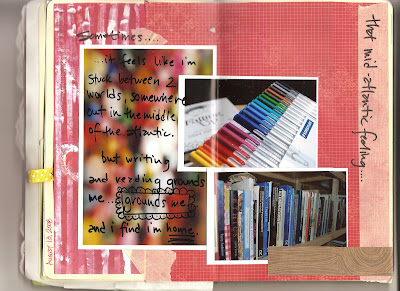 Sometimes....
...it feels like i'm
stuck between 2
worlds, somewhere
out in the middle
of the atlantic.
but writing
and reading grounds
me... grounds me
and i find i'm home.
that mid-atlantic feeling....